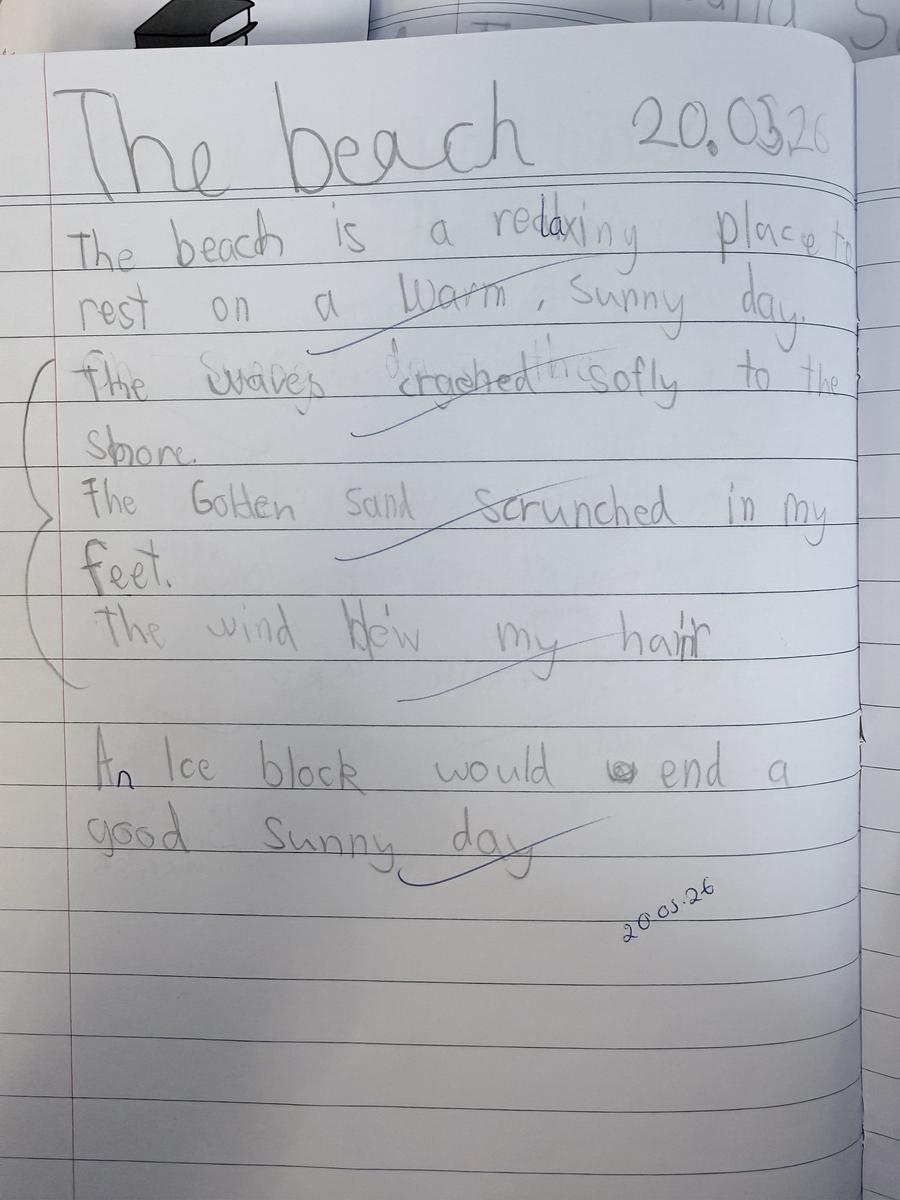 The beach 20.05.26
The beach is a relaxing place to
rest on a warm, sunny day.
The waves crashed softly to the
shore.
The Golden sand scrunched in my
feet.
The wind blew my hair
An Ice block would end a
good sunny day
20.05.26